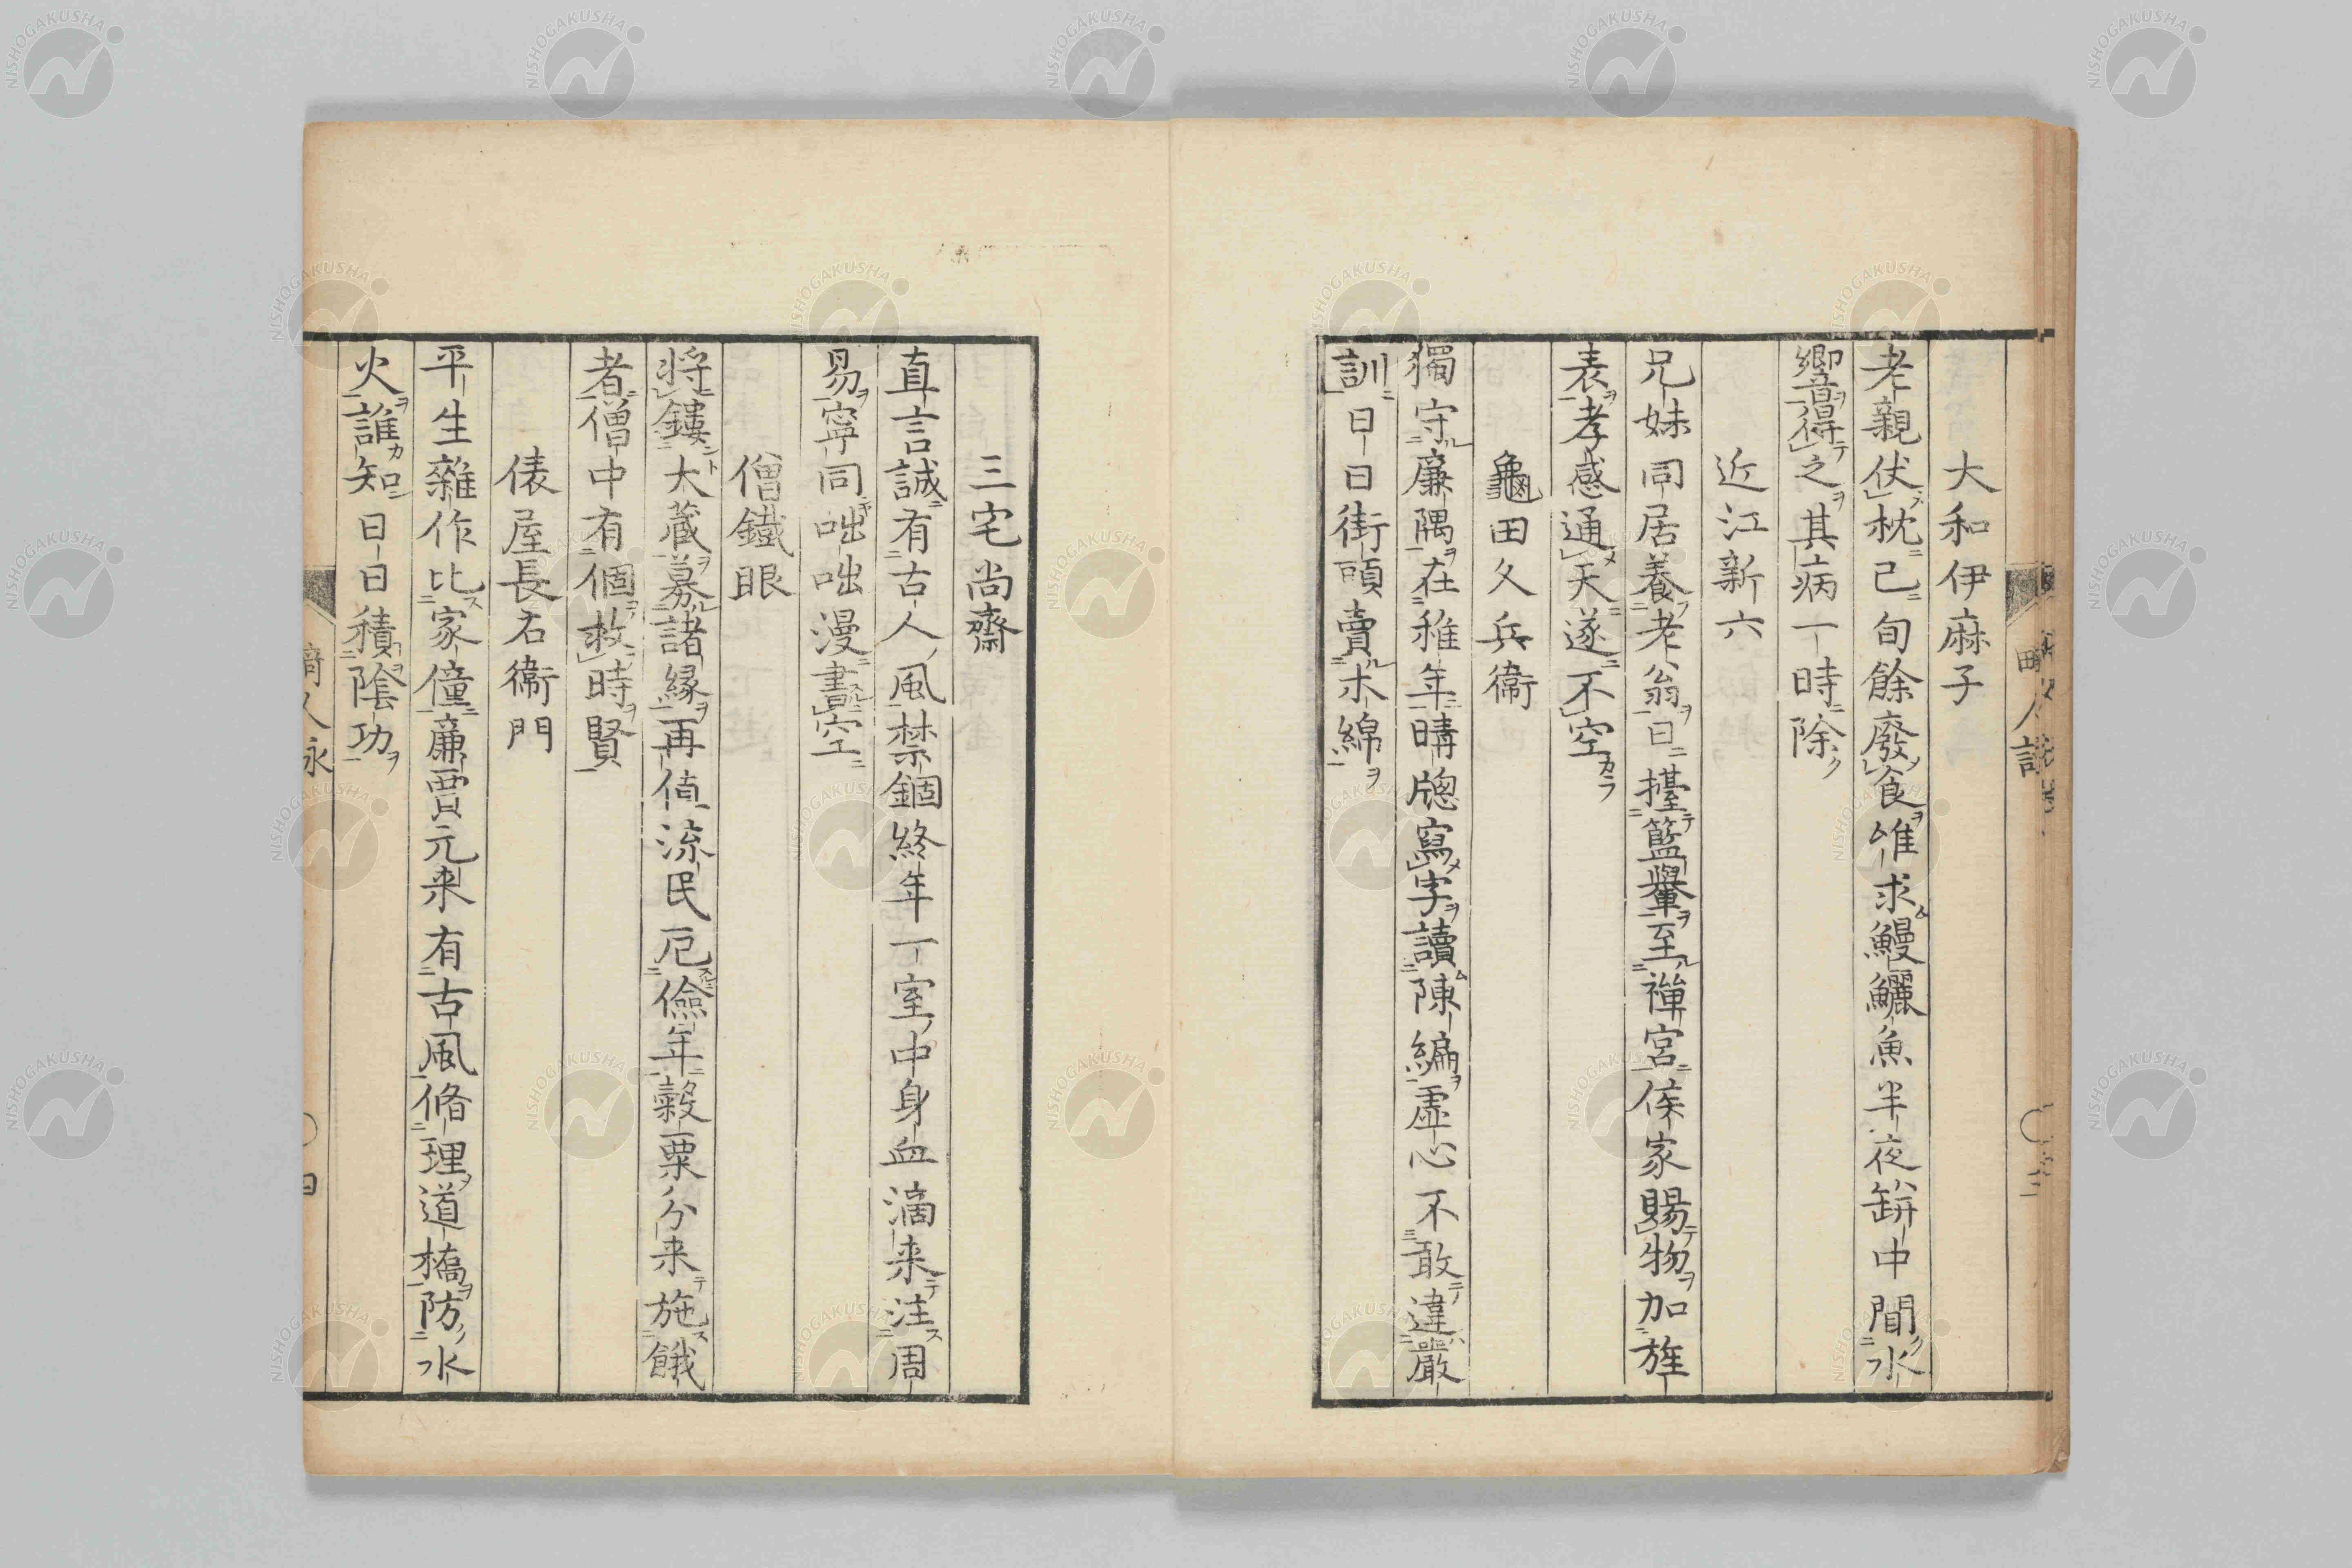 大和伊麻子
老親伏枕已旬餘廢食惟求鰻鱺魚半夜缾中聞水
響音得之其病一時除
近江新六
兄妹同居養老翁曰擡籃轝至禪宮侯家賜物加旌
表孝感通天遂不空
龜田久兵衛
獨守廉隅在稚年晴牕寫字讀陳編虛心不敢違嚴
訓日日街頭賣木綿
三宅尚齋
直言誠有古人風禁錮終年一室中身血滴来注周
易寧同咄咄漫書空
僧鐵眼
将鏤大蔵募諸縁再値流民厄儉年穀粟分来施餓
者僧中有個救時賢
俵屋長右衛門
平生雜作比家僮廉賈元来有古風脩理道橋防水
火誰知日日積陰功
NISHOGAKUSHA